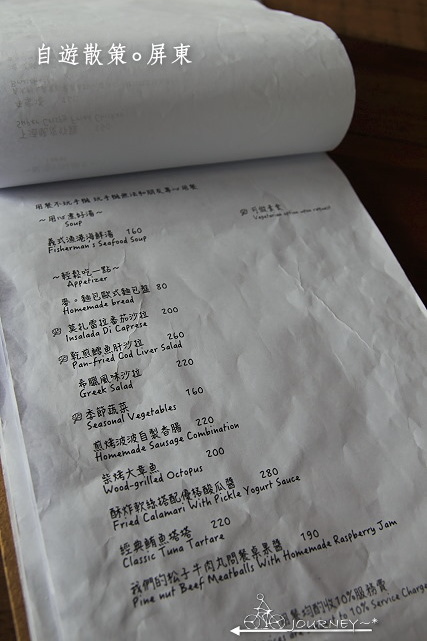 自遊散策。屏東
用餐不玩手機 玩手機無法和朋友專心用餐
～用心煮好湯～
Soup
可做素食
Vegetarian option upon request
義式漁港海鮮湯 160
Fisherman's Seafood Soup
～輕鬆吃一點～
Appetizer
麥。麵包歐式麵包盤 80
Homemade bread
莫扎雷拉番茄沙拉 200
Insalada Di Caprese
乾煎鱈魚肝沙拉 260
Pan-fried Cod Liver Salad
希臘風味沙拉 220
Greek Salad
季節蔬菜 160
Seasonal Vegetables
煎烤波波自製香腸 220
Homemade Sausage Combination
柴烤大章魚 200
Wood-grilled Octopus
酥炸軟絲搭配優格酸瓜醬 280
Fried Calamari With Pickle Yogurt Sauce
經典鮪魚塔塔 220
Classic Tuna Tartare
我們的松子牛肉丸問餐桌果醬 190
Pine nut Beef Meatballs With Homemade Raspberry Jam
餐均酌收10%服務費
to 10% Service Charge
JOURNEY~*